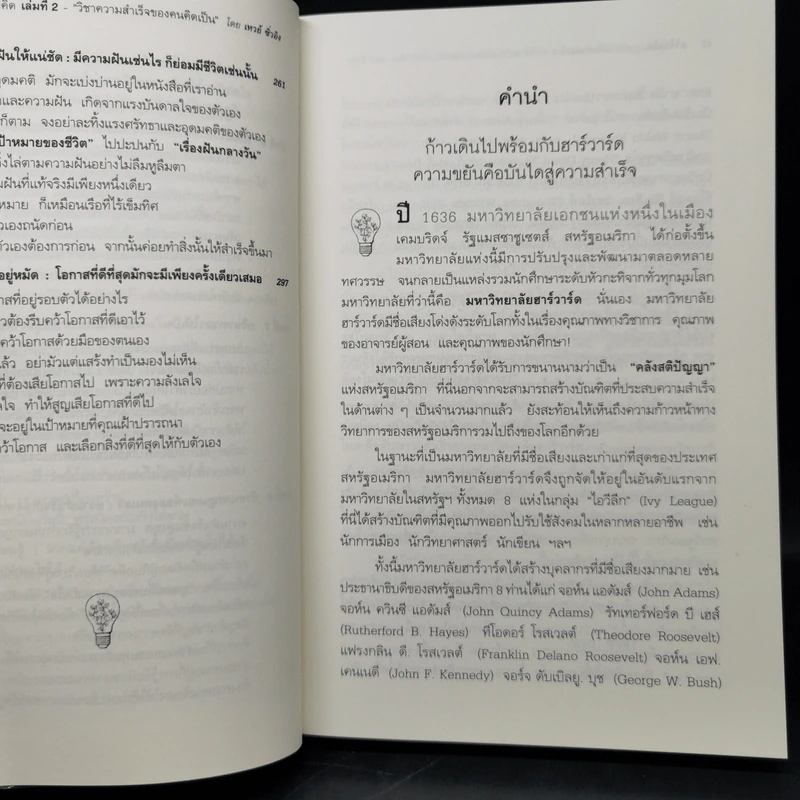 คิด เล่มที่ 2 - "วิชาความสำเร็จของคนคิดเป็น" โดย เหวย์ ซิ่วอิง
ฝันให้แน่ชัด : มีความฝันเช่นไร ก็ย่อมมีชีวิตเช่นนั้น 261
อุดมคติ มักจะเบ่งบานอยู่ในหนังสือที่เราอ่าน
และความฝัน เกิดจากแรงบันดาลใจของตัวเอง
ก็ตาม จงอย่าละทิ้งแรงศรัทธาและอุดมคติของตัวเอง
เป้าหมายของชีวิต" ไปปะปนกับ "เรื่องฝันกลางวัน"
ไล่ตามความฝันอย่างไม่ลืมหูลืมตา
ฝันที่แท้จริงมีเพียงหนึ่งเดียว
หมาย ก็เหมือนเรือที่ไร้เข็มทิศ
ัวเองถนัดก่อน
ตัวเองต้องการก่อน จากนั้นค่อยทำสิ่งนั้นให้สำเร็จขึ้นมา
อยู่หมัด : โอกาสที่ดีที่สุดมักจะมีเพียงครั้งเดียวเสมอ 297
กาสที่อยู่รอบตัวได้อย่างไร
วต้องรีบคว้าโอกาสที่ดีเอาไว้
คว้าโอกาสด้วยมือของตนเอง
แล้ว อย่ามัวแต่แสร้งทำเป็นมองไม่เห็น
ที่ต้องเสียโอกาสไป เพราะความลังเลใจ
ใจ ทำให้สูญเสียโอกาสที่ดีไป
จะอยู่ในเป้าหมายที่คุณเฝ้าปรารถนา
คว้าโอกาส และเลือกสิ่งที่ดีที่สุดให้กับตัวเอง
คำนำ
ก้าวเดินไปพร้อมกับฮาร์วาร์ด
ความขยันคือบันไดสู่ความสำเร็จ
ปี 1636 มหาวิทยาลัยเอกชนแห่งหนึ่งในเมือง
เคมบริดจ์ รัฐแมสซาชูเซตส์ สหรัฐอเมริกา ได้ก่อตั้งขึ้น
มหาวิทยาลัยแห่งนี้มีการปรับปรุงและพัฒนามาตลอดหลาย
ทศวรรษ จนกลายเป็นแหล่งรวมนักศึกษาระดับหัวกะทิจากทั่วทุกมุมโลก
มหาวิทยาลัยที่ว่านี้คือ มหาวิทยาลัยฮาร์วาร์ด นั่นเอง มหาวิทยาลัย
ฮาร์วาร์ดมีชื่อเสียงโด่งดังระดับโลกทั้งในเรื่องคุณภาพทางวิชาการ คุณภาพ
ของอาจารย์ผู้สอน และคุณภาพของนักศึกษา!
มหาวิทยาลัยฮาร์วาร์ดได้รับการขนานนามว่าเป็น "คลังสติปัญญา"
แห่งสหรัฐอเมริกา ที่นี่นอกจากจะสามารถสร้างบัณฑิตที่ประสบความสำเร็จ
ในด้านต่าง ๆ เป็นจำนวนมากแล้ว ยังสะท้อนให้เห็นถึงความก้าวหน้าทาง
วิทยาการของสหรัฐอเมริการวมไปถึงของโลกอีกด้วย
ในฐานะที่เป็นมหาวิทยาลัยที่มีชื่อเสียงและเก่าแก่ที่สุดของประเทศ
สหรัฐอเมริกา มหาวิทยาลัยฮาร์วาร์ดจึงถูกจัดให้อยู่ในอันดับแรกจาก
มหาวิทยาลัยในสหรัฐฯ ทั้งหมด 8 แห่งในกลุ่ม "ไอวีลีก" (Ivy League)
ที่นี่ได้สร้างบัณฑิตที่มีคุณภาพออกไปรับใช้สังคมในหลากหลายอาชีพ เช่น
นักการเมือง นักวิทยาศาสตร์ นักเขียน ฯลฯ
ทั้งนี้มหาวิทยาลัยฮาร์วาร์ดได้สร้างบุคลากรที่มีชื่อเสียงมากมาย เช่น
ประธานาธิบดีของสหรัฐอเมริกา 8 ท่านได้แก่ จอห์น แอดัมส์ (John Adams)
จอห์น ควินซี แอดัมส์ (John Quincy Adams) รัทเทอร์ฟอร์ด บี เฮส์
(Rutherford B. Hayes) ทีโอดอร์ โรสเวลต์ (Theodore Roosevelt)
แฟรงกลิน ดี. โรสเวลต์ (Franklin Delano Roosevelt) จอห์น เอฟ.
เคนเนดี (John F. Kennedy) จอร์จ ดับเบิลยู. บุช (George W. Bush)